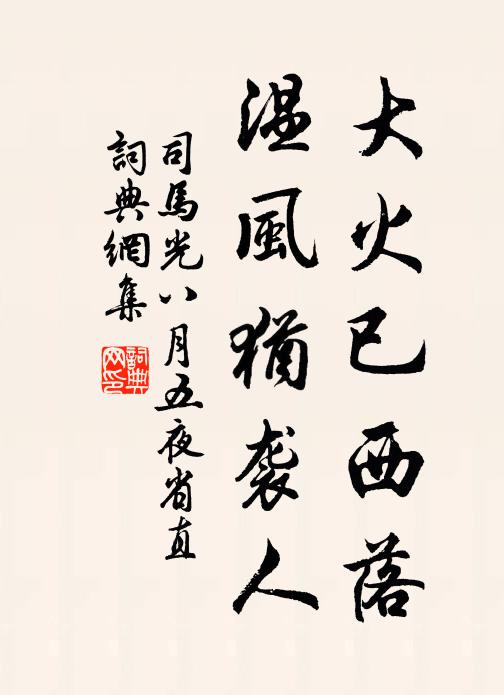 大火已西落
温風猶袭人
司馬光八月五夜省直
詞典網集
詞典网印